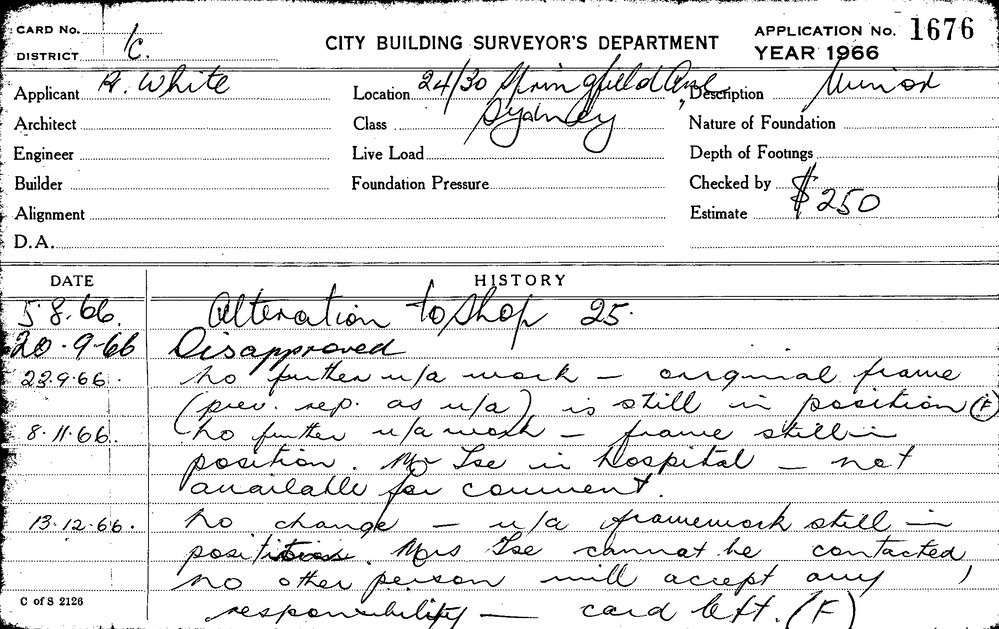 CARD No.
DISTRICT 1C.
CITY BUILDING SURVEYOR'S DEPARTMENT
APPLICATION No. 1676
YEAR 1966
Applicant A. White
Location 24/30 Springfield Ave, Sydney
Description Minor
Architect
Class
Nature of Foundation
Engineer
Live Load
Depth of Footings
Builder
Foundation Pressure
Checked by
Alignment
Estimate $250
D.A.
DATE HISTORY
5.8.66. Alteration to Shop 25.
20.9.66 Disapproved
22.9.66. No further u/a work – original frame
(prev. rep. as u/a) is still in position (F)
8.11.66. No further u/a work – frame still in
position. Mr Tse in hospital – not
available for comment.
13.12.66. No change – u/a framework still in
position. Mrs Tse cannot be contacted,
no other person will accept any
responsibility – card left. (F)
C of S 2126